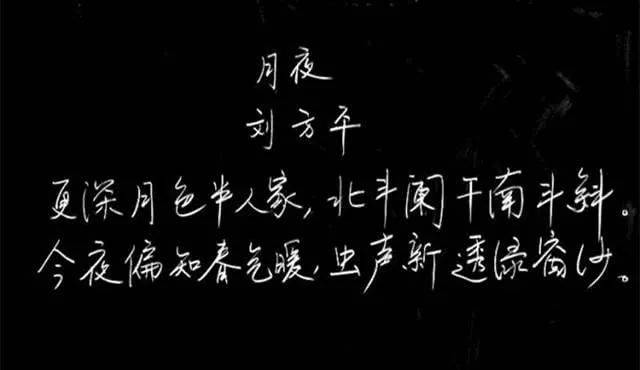 月夜
刘方平
更深月色半人家,北斗阑干南斗斜。
今夜偏知春气暖,虫声新透绿窗纱。